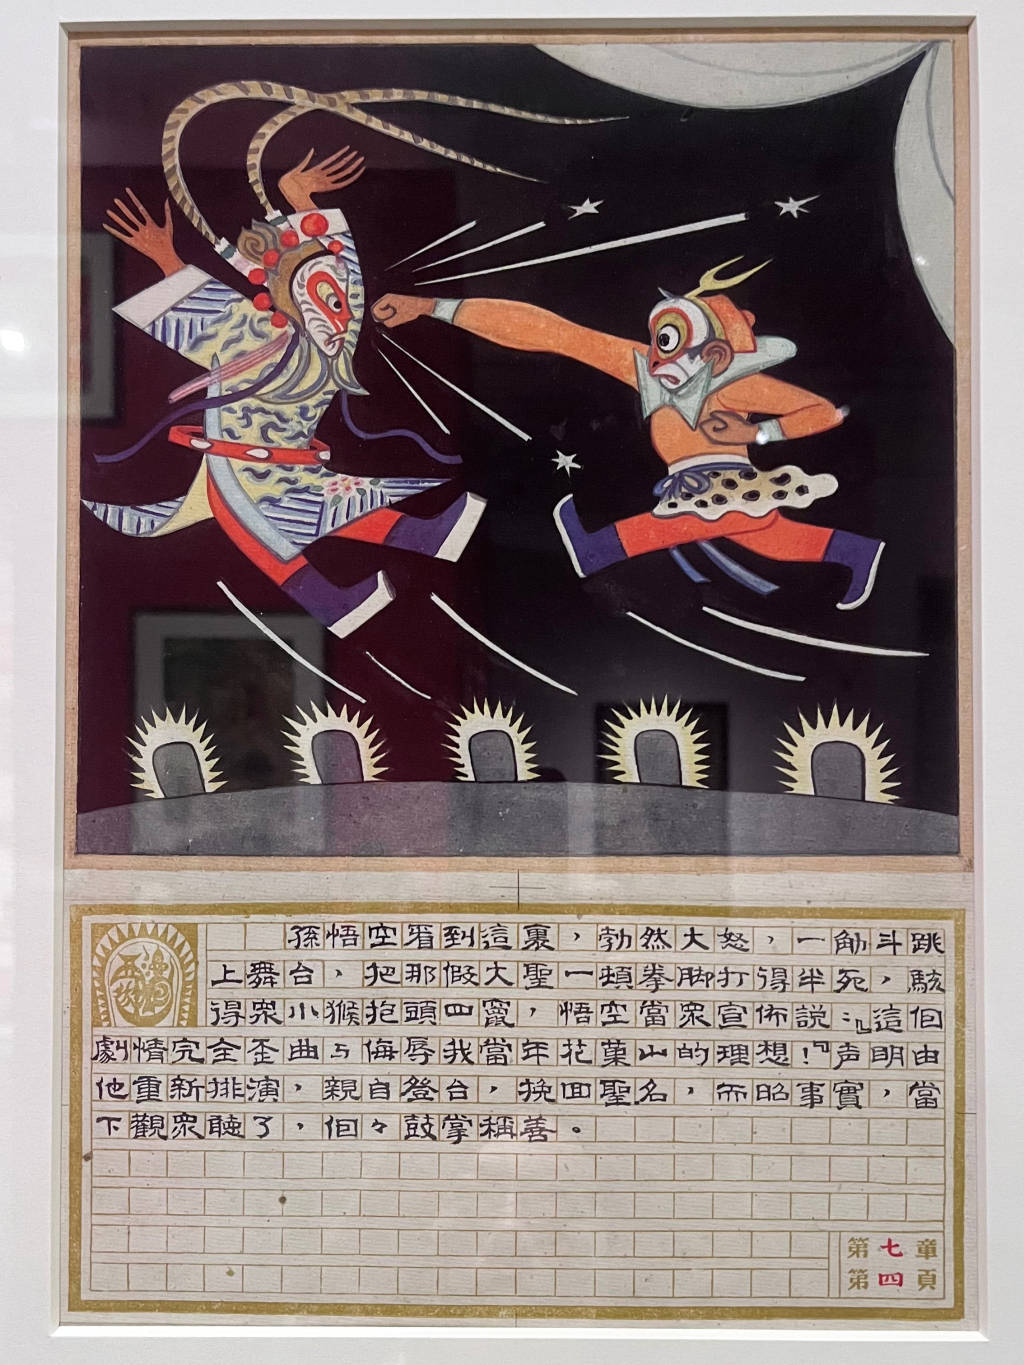 孫悟空看到這裏，勃然大怒，一觔斗跳
上舞台，把那假大聖一頓拳脚打得半死，駭
得眾小猴抱頭四竄，悟空當眾宣佈說：『這個
劇情完全歪曲与侮辱我當年花菓山的理想！』声明由
他重新排演，親自登台，挽回聖名，而昭事實，當
下觀眾聽了，個々鼓掌稱善。
第七章
第四頁